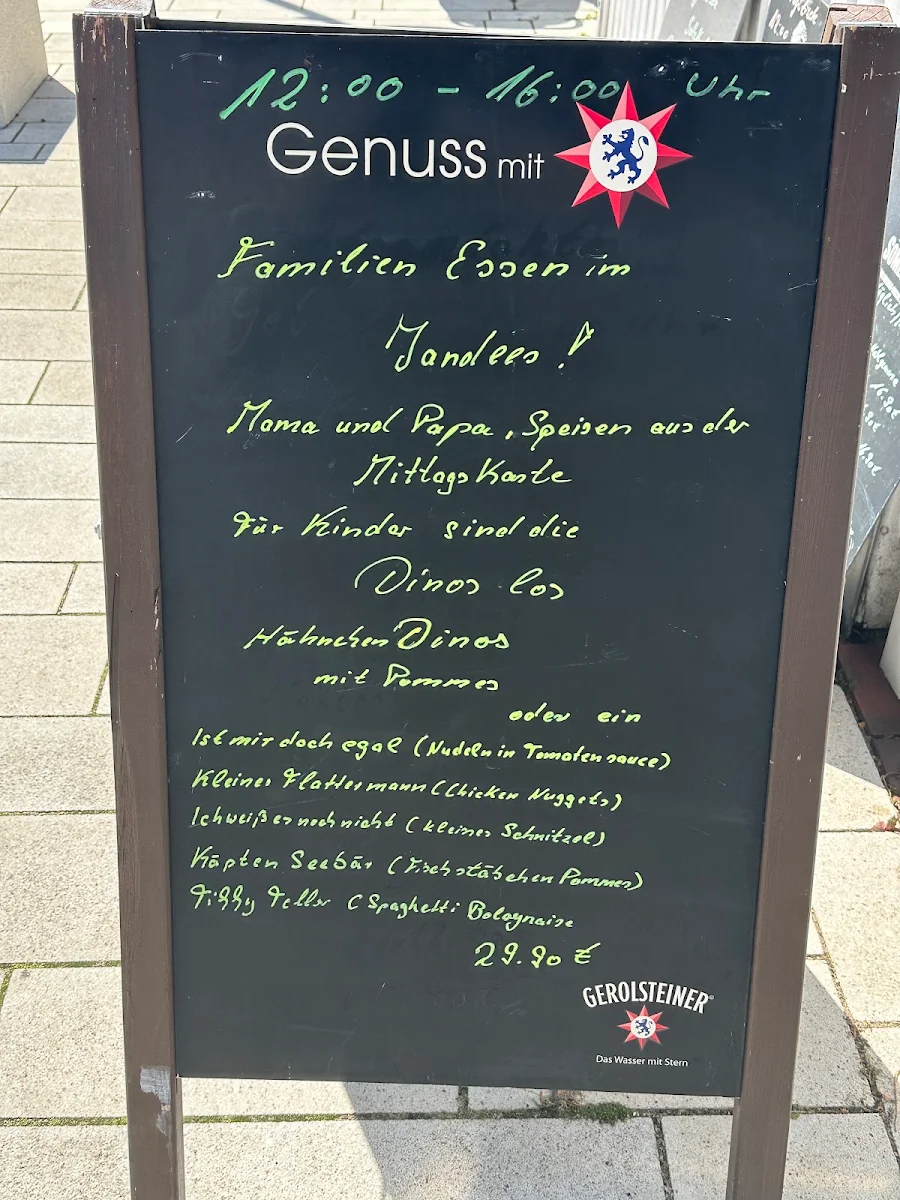 12:00 - 16:00 Uhr
Genuss mit
Familien Essen im
Jandees !
Mama und Papa, Speisen aus der
Mittags Karte
Für Kinder sind die
Dinos los
Hähnchen Dinos
mit Pommes
oder ein
Ist mir doch egal (Nudeln in Tomatensauce)
Kleiner Flattermann (Chicken Nuggets)
Ich weiß es noch nicht (kleines Schnitzel)
Käpten Seebär (Fischstäbchen Pommes)
Teller (Spaghetti Bolognaise
29.90 €
GEROLSTEINER
Das Wasser mit Stern